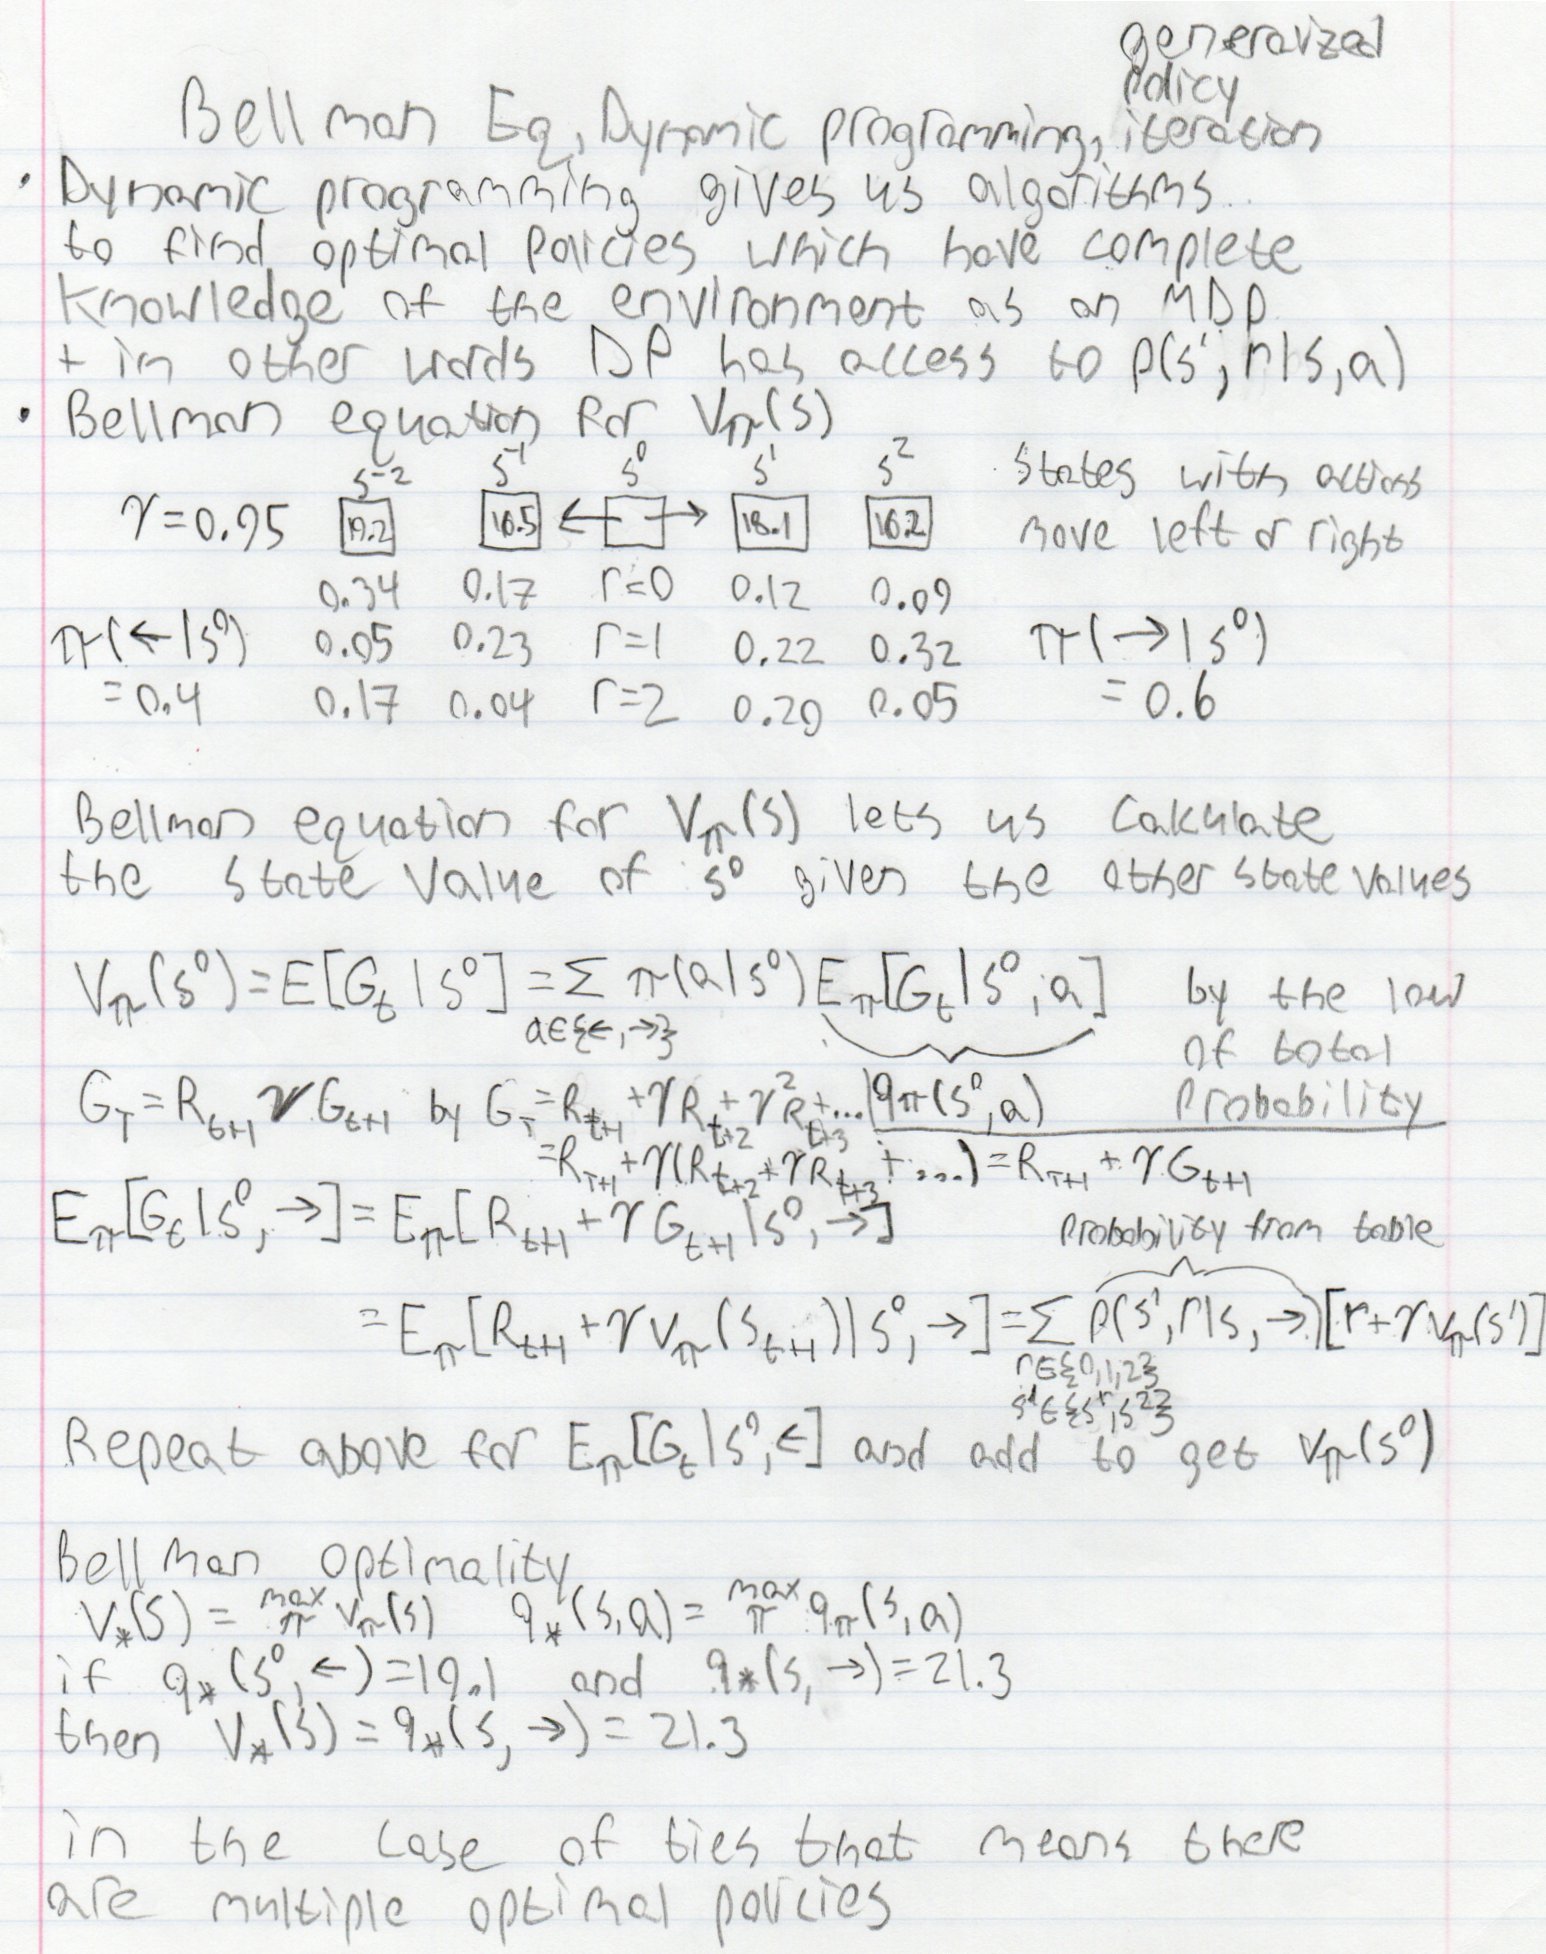 generalized
policy
Bellman Eq, Dynamic programming, iteration
• Dynamic programming gives us algorithms
to find optimal policies which have complete
knowledge of the environment as an MDP
+ in other words DP has access to p(s', r|s, a)
• Bellman equation for Vπ(s)
s⁻² s⁻¹ s⁰ s¹ s²
γ=0.95 19.2 16.5 ← → 18.1 16.2
states with actions
move left or right
0.34 0.17 r=0 0.12 0.09
π(←|s⁰) 0.05 0.23 r=1 0.22 0.32 π(→|s⁰)
=0.4 0.17 0.04 r=2 0.20 0.05 =0.6
Bellman equation for Vπ(s) lets us calculate
the state value of s⁰ given the other state values
Vπ(s⁰)=E[Gt|s⁰]=Σ π(a|s⁰)Eπ[Gt|s⁰,a] by the law
a∈{←,→} of total
GT=Rt+1 γGt+1 by GT=Rt+1+γRt+2+γ²Rt+3+... qπ(s⁰,a) Probability
=RT+1+γ(Rt+2+γRt+3+...)=RT+1+γGt+1
Eπ[Gt|s⁰,→]=Eπ[Rt+1+γGt+1|s⁰,→]
probability from table
=Eπ[Rt+1+γVπ(St+1)|s⁰,→]=Σ p(s',r|s,→)[r+γVπ(s')]
r∈{0,1,2}
s'∈{s¹,s²}
Repeat above for Eπ[Gt|s⁰,←] and add to get Vπ(s⁰)
Bellman optimality
V*(s)=max π Vπ(s) q*(s,a)=max π qπ(s,a)
if q*(s⁰,←)=19.1 and q*(s,→)=21.3
then V*(s)=q*(s,→)=21.3
in the case of ties that means there
are multiple optimal policies